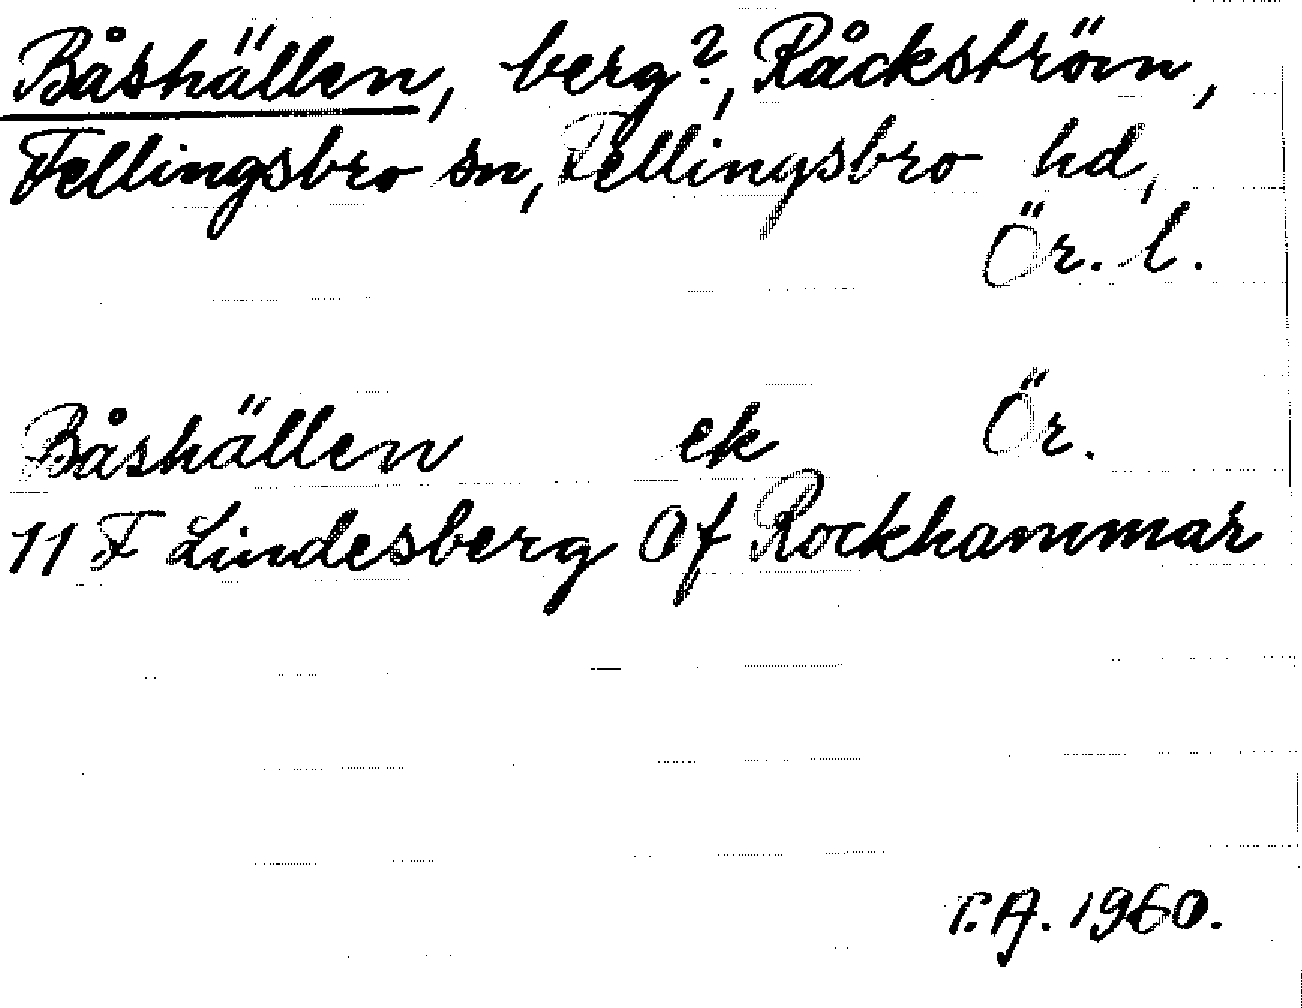 Båshällen, berg?, Råckström,
Fellingsbro sn, Fellingsbro hd,
Ör. l.
Båshällen ek Ör.
11 F Lindesberg Of Rockhammar
r.A. 1960.